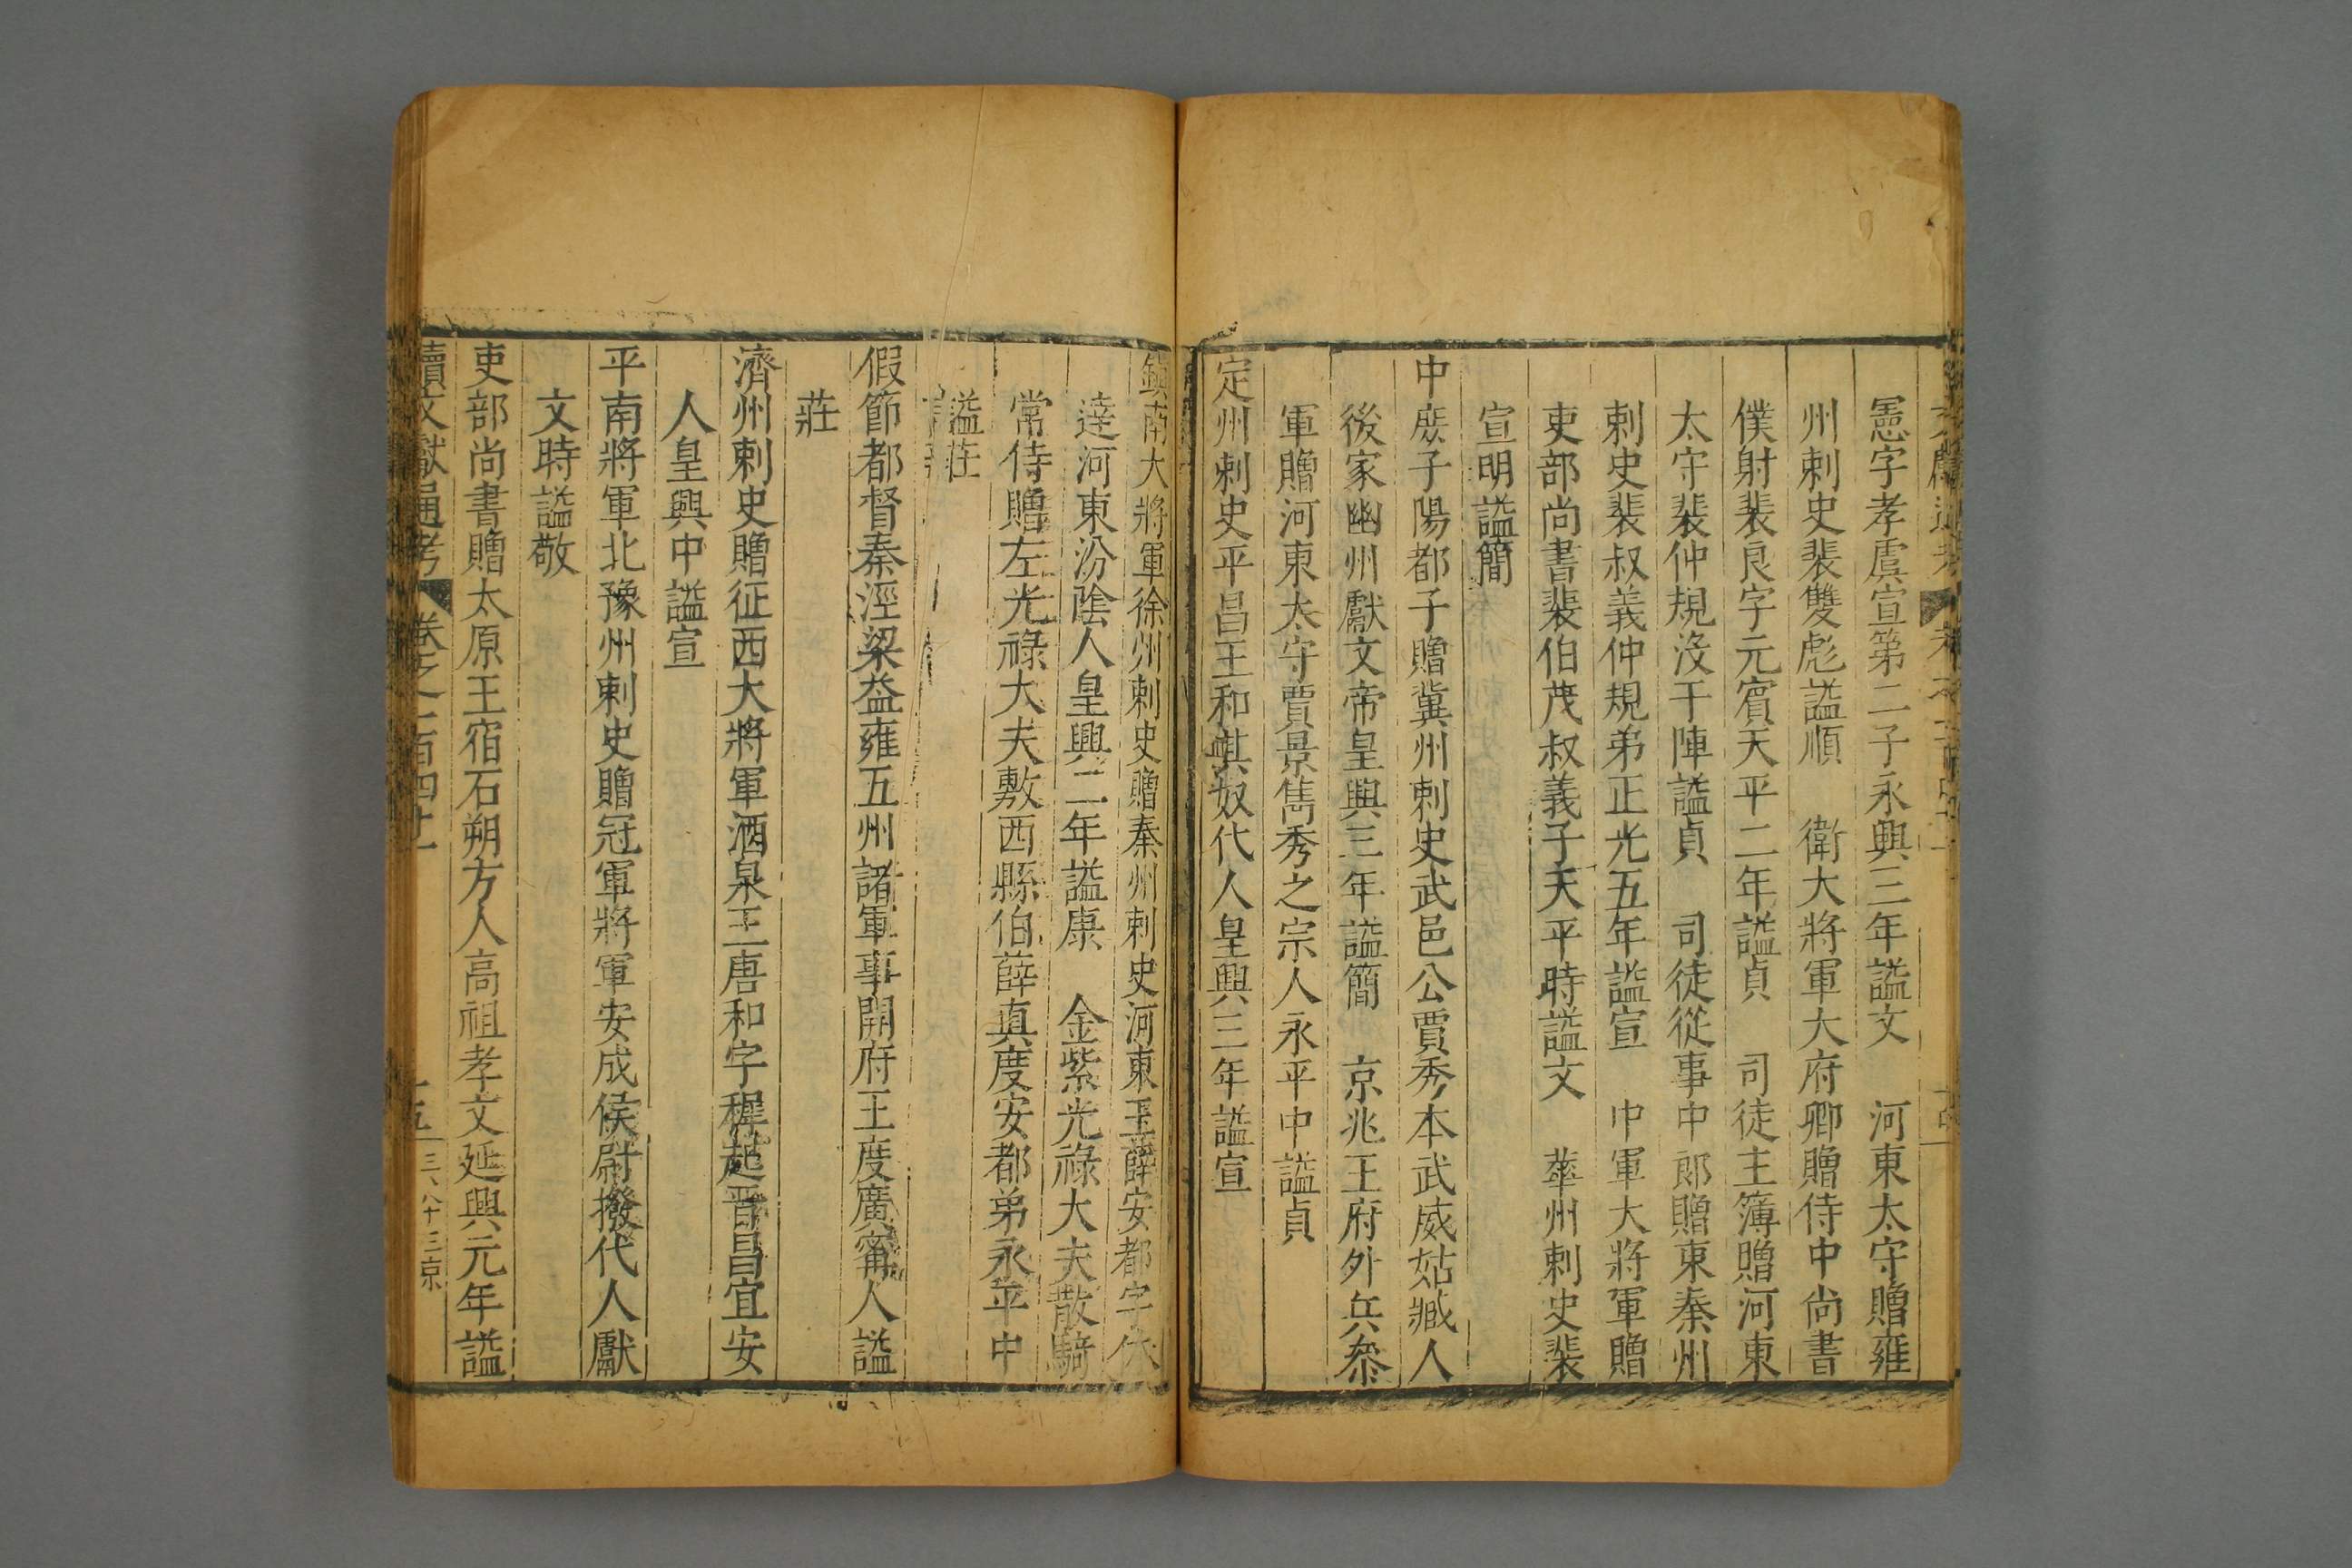 罴字孝虞宣第二子永興三年謚文　河東太守贈雍
州刺史裴雙彪謚順　衛大將軍大府卿贈侍中尚書
僕射裴良字元賓天平二年謚貞　司徒主簿贈河東
太守裴仲規沒于陣謚貞　司徒從事中郎贈東秦州
刺史裴叔義仲規弟正光五年謚宣　中軍大將軍贈
吏部尚書裴伯茂叔義子天平時謚文　華州刺史裴
宣明謚簡
中庶子陽都子贈冀州刺史武邑公賈秀本武威姑臧人
後家幽州獻文帝皇興三年謚簡　京兆王府外兵叅
軍贈河東太守賈景雋秀之宗人永平中謚貞
定州刺史平昌王和其奴代人皇興三年謚宣
鎮南大將軍徐州刺史贈秦州刺史河東王薛安都字休
達河東汾陰人皇興二年謚康　金紫光祿大夫散騎
常侍贈左光祿大夫敷西縣伯薛真度安都弟永平中
謚莊
假節都督秦涇梁益雍五州諸軍事開府王度廣甯人謚
莊
濟州刺史贈征西大將軍酒泉王唐和字穉起晋昌宜安
人皇興中謚宣
平南將軍北豫州刺史贈冠軍將軍安成侯尉撥代人獻
文時謚敬
吏部尚書贈太原王宿石朔方人高祖孝文延興元年謚
續文獻通考　卷之一百四十　十五　三八十三京